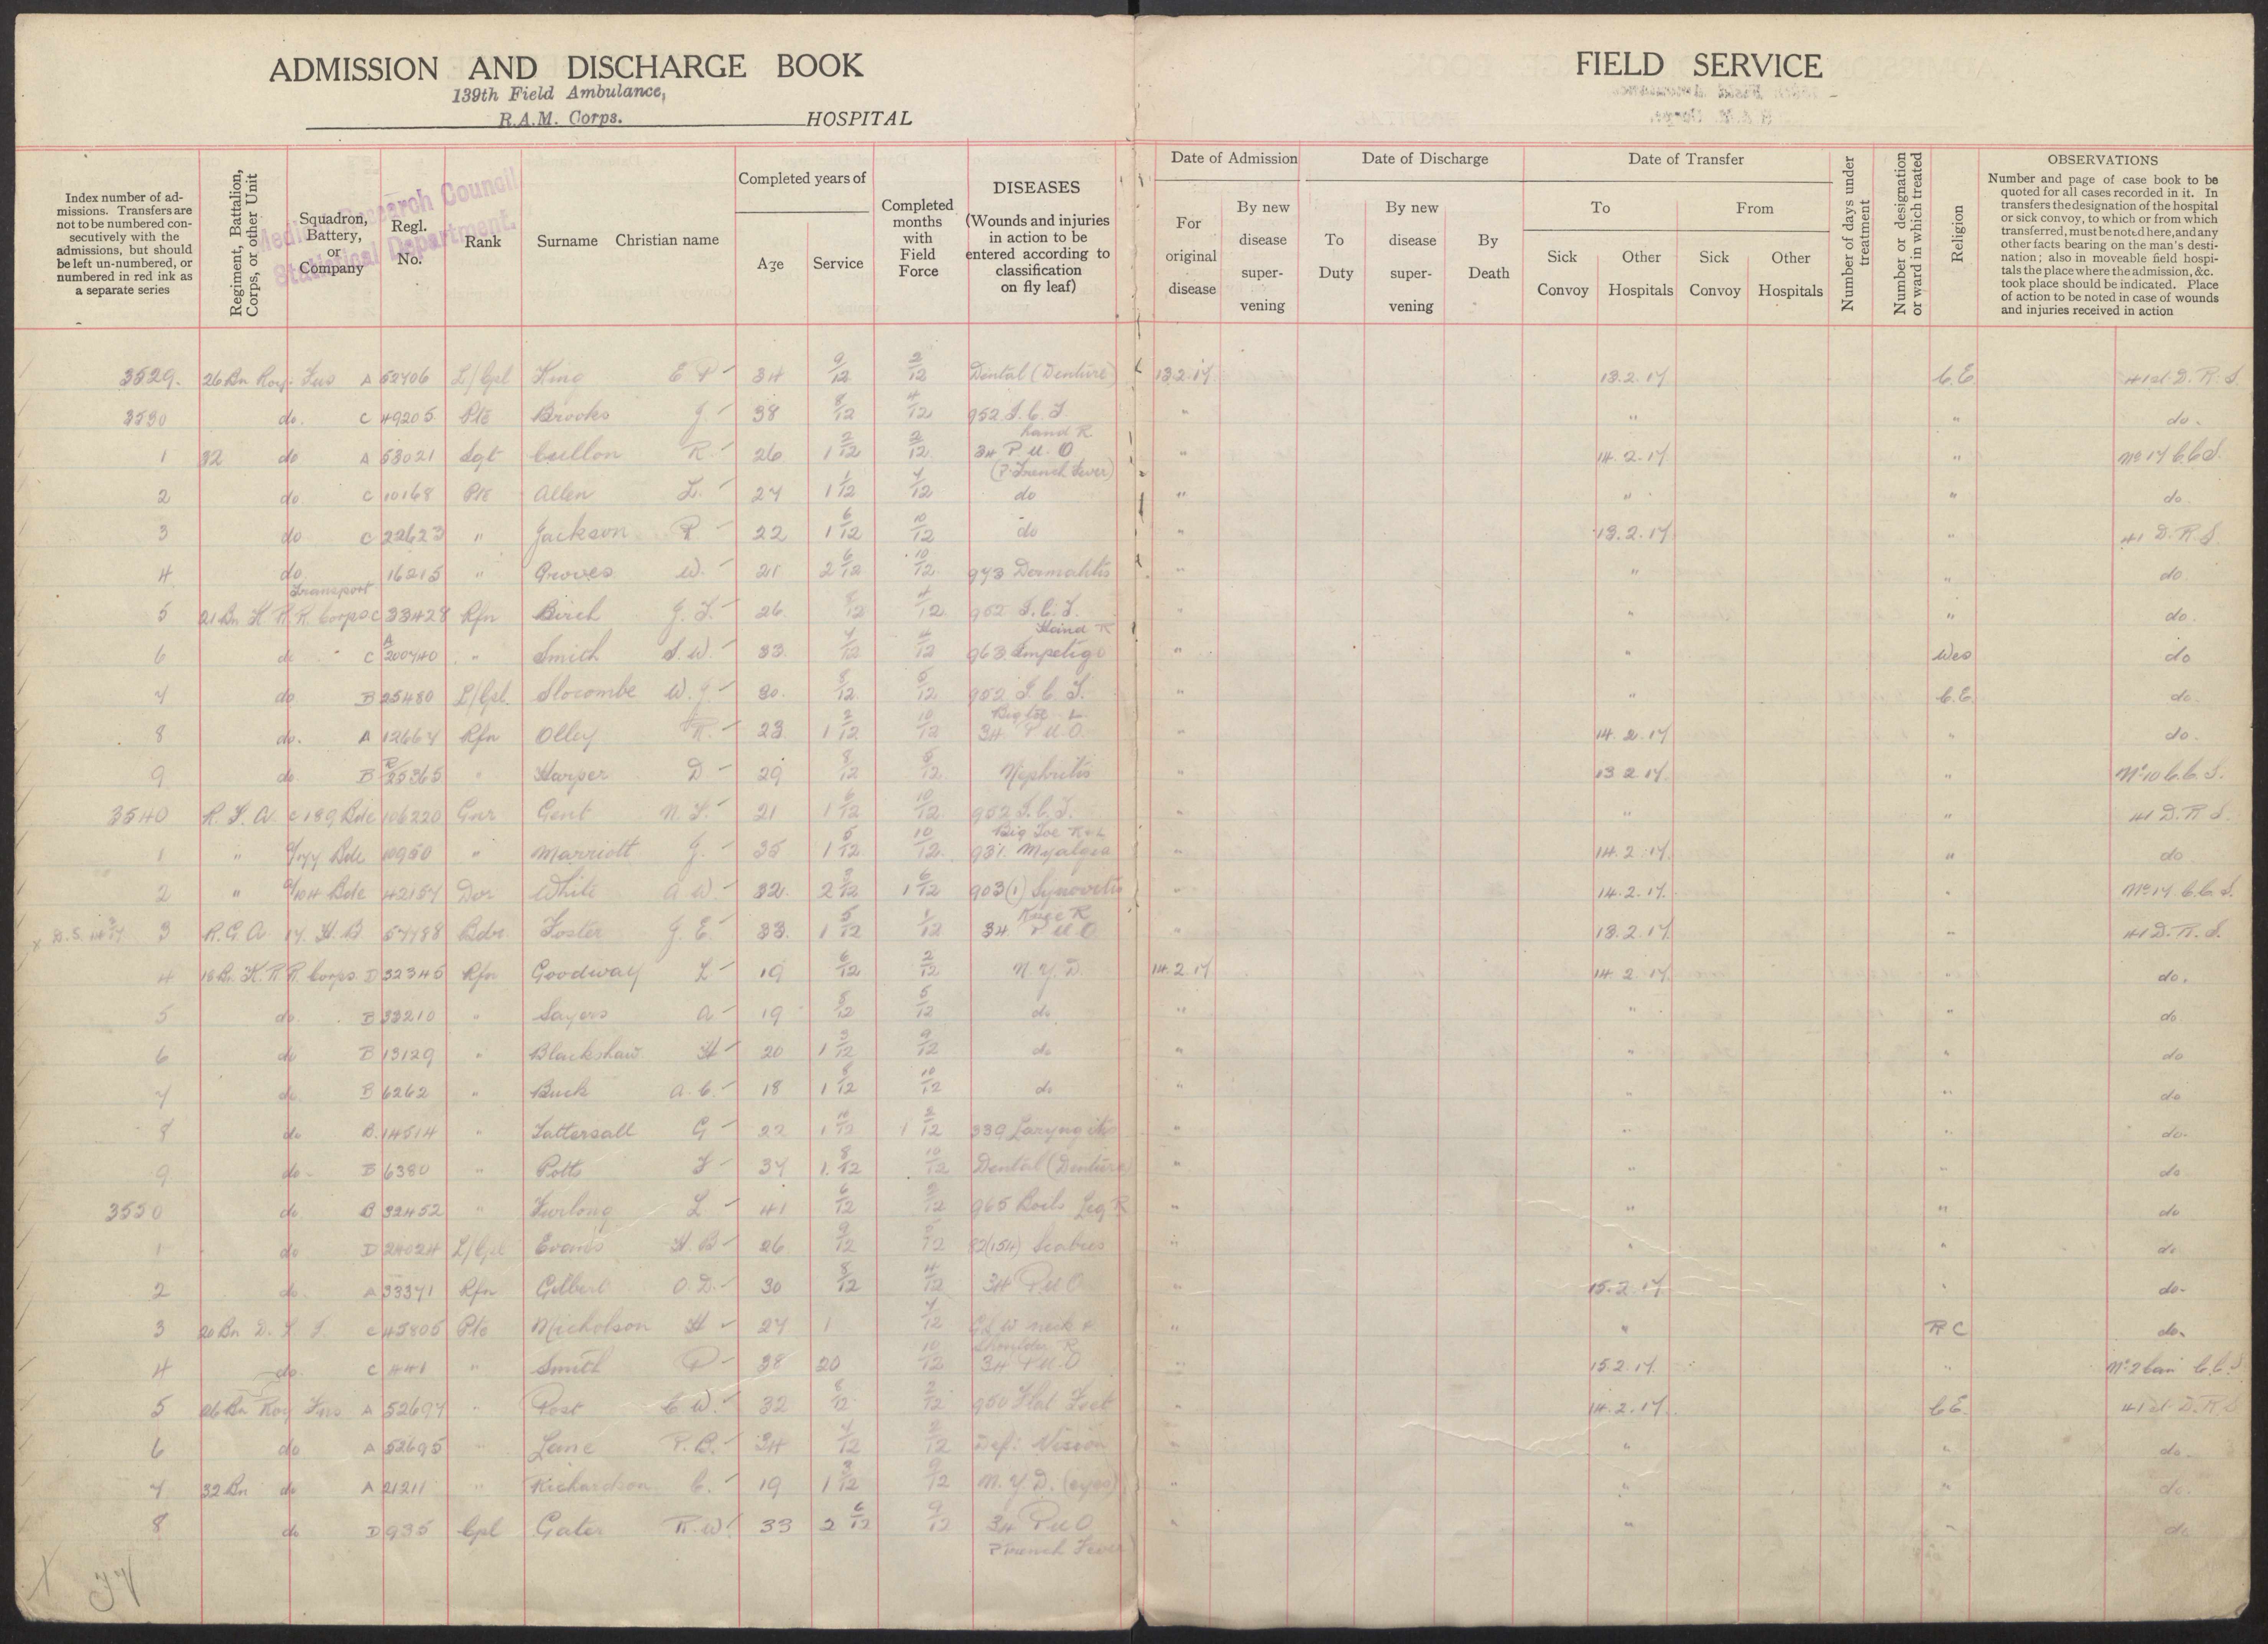 ADMISSION AND DISCHARGE BOOK
139th Field Ambulance,
R.A.M. Corps. HOSPITAL
FIELD SERVICE
Medical Research Council
Statistical Department.
Index number of admissions. Transfers are not to be numbered consecutively with the admissions, but should be left un-numbered, or numbered in red ink as a separate series
Regiment, Battalion, Corps, or other Unit
Squadron, Battery, or Company
Regl. No.
Rank
Surname Christian name
Completed years of
Age
Service
Completed months with Field Force
DISEASES
(Wounds and injuries in action to be entered according to classification on fly leaf)
Date of Admission
For original disease
By new disease supervening
Date of Discharge
To Duty
By new disease supervening
By Death
Date of Transfer
To
Sick Convoy
Other Hospitals
From
Sick Convoy
Other Hospitals
Number of days under treatment
Number or designation or ward in which treated
Religion
OBSERVATIONS
Number and page of case book to be quoted for all cases recorded in it. In transfers the designation of the hospital or sick convoy, to which or from which transferred, must be noted here, and any other facts bearing on the man's destination; also in moveable field hospitals the place where the admission, &c. took place should be indicated. Place of action to be noted in case of wounds and injuries received in action
3529. 26 Bn Roy. Fus A 52406 L/Cpl King E P 34 9/12 2/12 Dental (Denture) 13.2.17 13.2.17 C.E. 41st D.R.S.
3530 do. C 49205 Pte Brooks J. 38 8/12 4/12 952 I.C.T. hand R " " " do.
1 32 do A 53021 Sgt Cullon R. 26 1 2/12 2/12 34 P.U.O (? Trench Fever) " 14.2.17 " No 17 C.C.S.
2 do C 10168 Pte Allen L. 27 1 1/12 do " " " do.
3 do C 22623 " Jackson P. 22 1 6/12 10/12 do " 13.2.17 " 41 D.R.S.
4 do Transport 16215 " Groves W. 21 2 6/12 10/12 973 Dermatitis " " " do.
5 21 Bn K.R.R. Corps C 33428 Rfn Birch J.T. 26 8/12 4/12 952 I.C.T. Hand R " " " do.
6 do " C A/200740 " Smith S.W. 33. 7/12 4/12 963 Impetigo " " Wes do
7 do. B 25480 L/Cpl. Slocombe W.J. 30. 8/12 5/12 952 I.C.T. Big toe L " " C.E. do.
8 do. A 12667 Rfn Olley R. 23. 1 2/12 10/12 34 P.U.O. " 14.2.17 " do.
9 do B R/25365 " Harper D 29 8/12 5/12 Nephritis " 13.2.17. " No 10 C.C.S.
3540 R.F.A. C 189 Bde 106220 Gnr Gent N.S. 21 1 6/12 10/12 952 I.C.T. Big Toe R & L " " " 41 D.R.S.
1 " Bde 10950 " Marriott J. 35 1 5/12 10/12 931. Myalgia " 14.2.17. " do
2 " Bde 42157 Dvr White A W. 32. 2 1 6/12 903(1) Synovitis Knee R " 14.2.17. " No 17 C.C.S.
x D.S. 3 R.G.A 17. H.B 57788 Bdr Foster J.E. 33. 1 5/12 1/12 34 P U O " 13.2.17. " 41 D.R.S.
4 18 Bn K.R.R. Corps. D 32345 Rfn Goodway L 19 6/12 2/12 N.Y.D. 14.2.17 14.2.17. " do.
5 do. B 33210 " Sayers A 19 5/12 do " " " do
6 do B 13129 " Blackshaw H 20 1 3/12 9/12 do " " " do
7 do B 6262 " Buck A.C. 18 1 8/12 10/12 do " " " do
8 do B. 14514 " Tattersall G 22 1 10/12 1 339 Laryngitis " " " do.
9 do B 6380 " Potts J 37 1. 8/12 10/12 Dental (Denture) " " " do
3550 do B 32452 " Furlong L 41 6/12 2/12 965 Boils Leg R " " " do
1 do D 24024 L/Cpl Evans H.B 26 9/12 5/12 Scabies " " " do
2 do. A 33371 Rfn Gilbert O.D. 30 8/12 4/12 34 P U O " 15.2.17 " do.
3 20 Bn D.L.I. C 45805 Pte Nicholson H 27 1 7/12 neck & Shoulder R " " R C do.
4 do. C 441 " Smith P 38 20 10/12 34 P.U.O " 15.2.17. " No 2 Can C.C.S
5 26 Bn Roy Fus A 52697 " Post C.W. 32 8/12 2/12 950 Flat Feet " 14.2.17. C.E. 41st D.R.S
6 do A 52695 " Lane P.B. 34 7/12 2/12 Def: Vision " " " do.
7 32 Bn do A 21211 " Richardson C. 19 1 9/12 N.Y.D. (eyes) " " " do.
8 do D 935 Cpl Gater R.W. 33 2 6/12 9/12 34 P.U.O ? Trench Fever " " " do